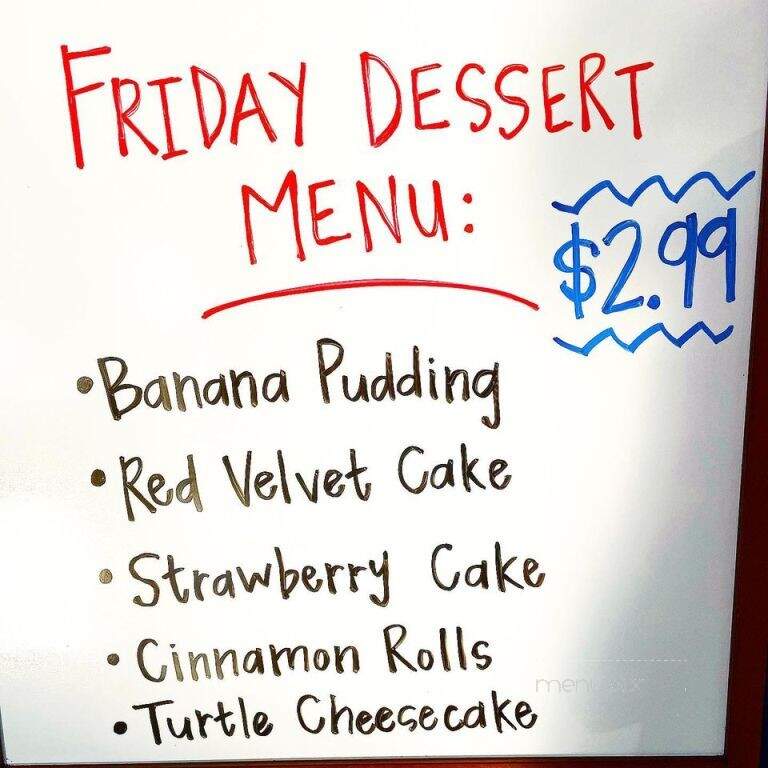 FRIDAY DESSERT
MENU:
$2.99
• Banana Pudding
• Red Velvet Cake
• Strawberry Cake
• Cinnamon Rolls
• Turtle Cheesecake